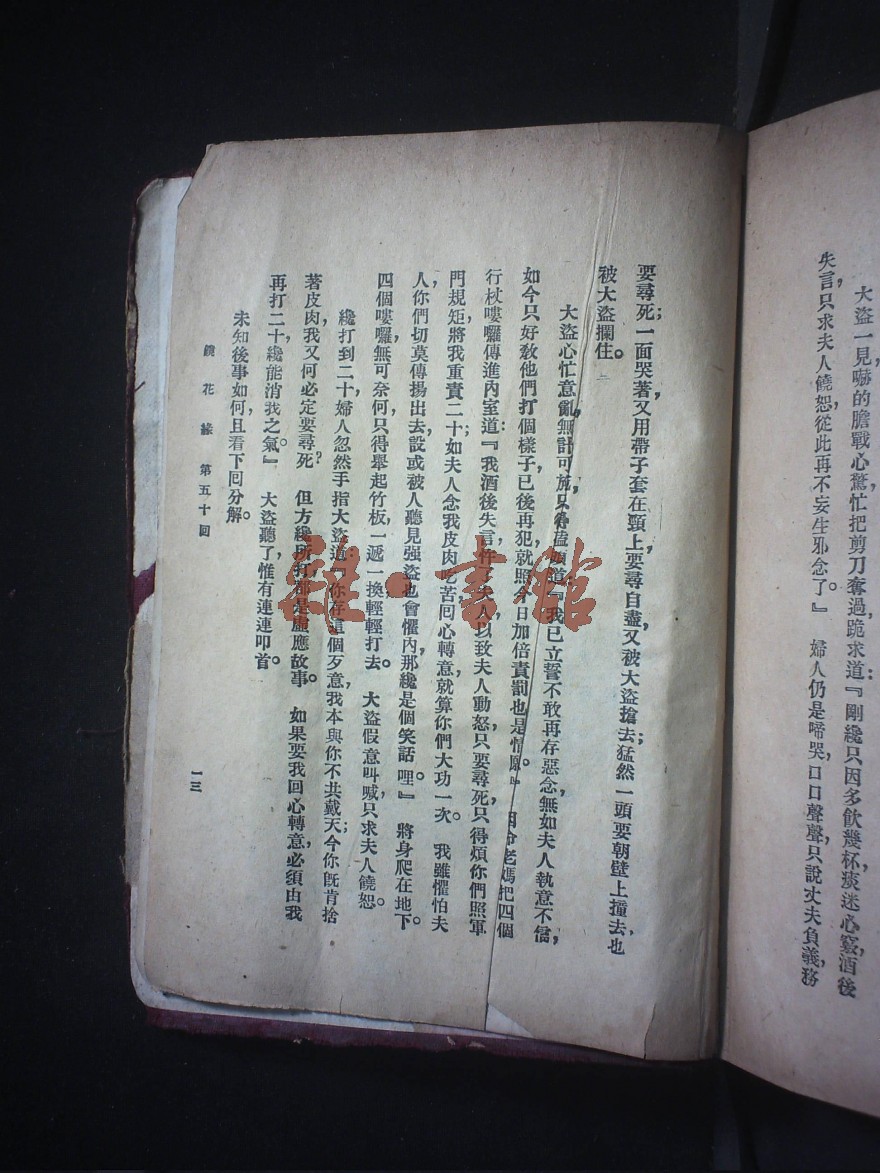 大盜一見嚇的膽戰心驚忙把剪刀奪過跪求道:『剛纔只因多飲幾杯痰迷心竅,酒後
失言,只求夫人饒恕,從此再不妄生邪念了。』 婦人仍是啼哭,口口聲聲只說丈夫負義,務
要尋死;一面哭著又用帶子套在頸上要尋自盡,又被大盜搶去;猛然一頭要朝壁上撞去,也
被大盜攔住。
大盜心忙意亂,無計可施,只得磕頭道:『我已立誓不敢再存惡念,無如夫人執意不信,
如今只好教他們打個樣子,已後再犯,就照今日加倍責罰也是情願。』 因命老媽把四個
行杖嘍囉傳進內室道:『我酒後失言,忤了夫人,以致夫人動怒,只要尋死;只得煩你們照軍
門規矩將我重責二十;如夫人念我皮肉吃苦,回心轉意,就算你們大功一次。 我雖懼怕夫
人,你們切莫傳揚出去;設或被人聽見強盜也會懼內,那纔是個笑話哩。』 將身爬在地下。
四個嘍囉無可奈何,只得舉起竹板,一遞一換輕輕打去。 大盜假意叫喊,只求夫人饒恕。
纔打到二十,婦人忽然手指大盜道:『你存這個歹意,我本與你不共戴天;今你既肯捨
著皮肉,我又何必定要尋死? 但方纔所打都是虛應故事。 如果要我回心轉意,必須由我
再打二十,纔能消我之氣。』 大盜聽了,惟有連連叩首。
未知後事如何,且看下回分解。
鏡花緣 第五十回
一三
雜·書館